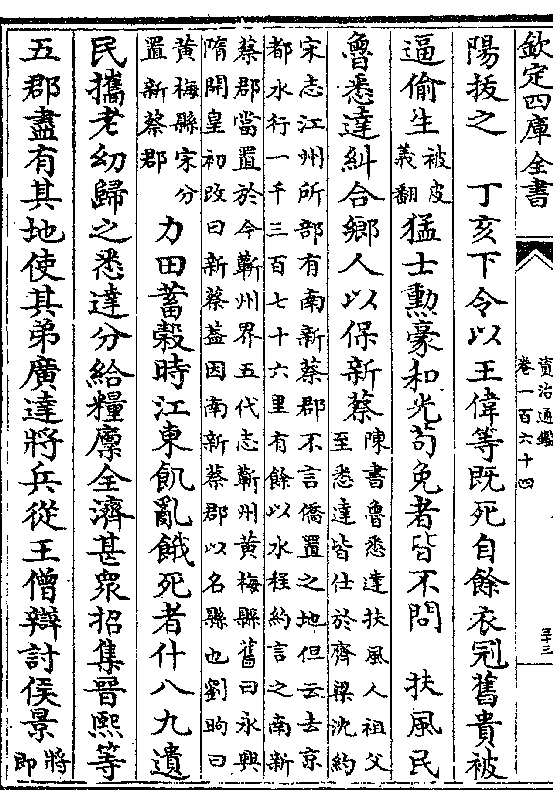 欽定四庫全書
資治通鑑
卷一百六十四
陽拔之　丁亥下令以王偉等既死自餘衣冠舊貴被
逼偷生
被皮
義翻
猛士勲豪和光苟免者皆不問　扶風民
魯悉達糾合鄉人以保新蔡
陳書魯悉達扶風人祖父
至悉達皆仕於齊梁沈約
宋志江州所部有南新蔡郡不言僑置之地但云去京
都水行一千三百七十六里有餘以水程約言之南新
蔡郡當置於今蘄州界五代志蘄州黄梅縣舊曰永興
隋開皇初改曰新蔡葢因南新蔡郡以名縣也劉昫曰
黄梅縣宋分
置新蔡郡
力田蓄榖時江東飢亂餓死者什八九遺
民攜老幼歸之悉達分給糧廪全濟甚衆招集晉熙等
五郡盡有其地使其弟廣達將兵從王僧辯討侯景
將
即